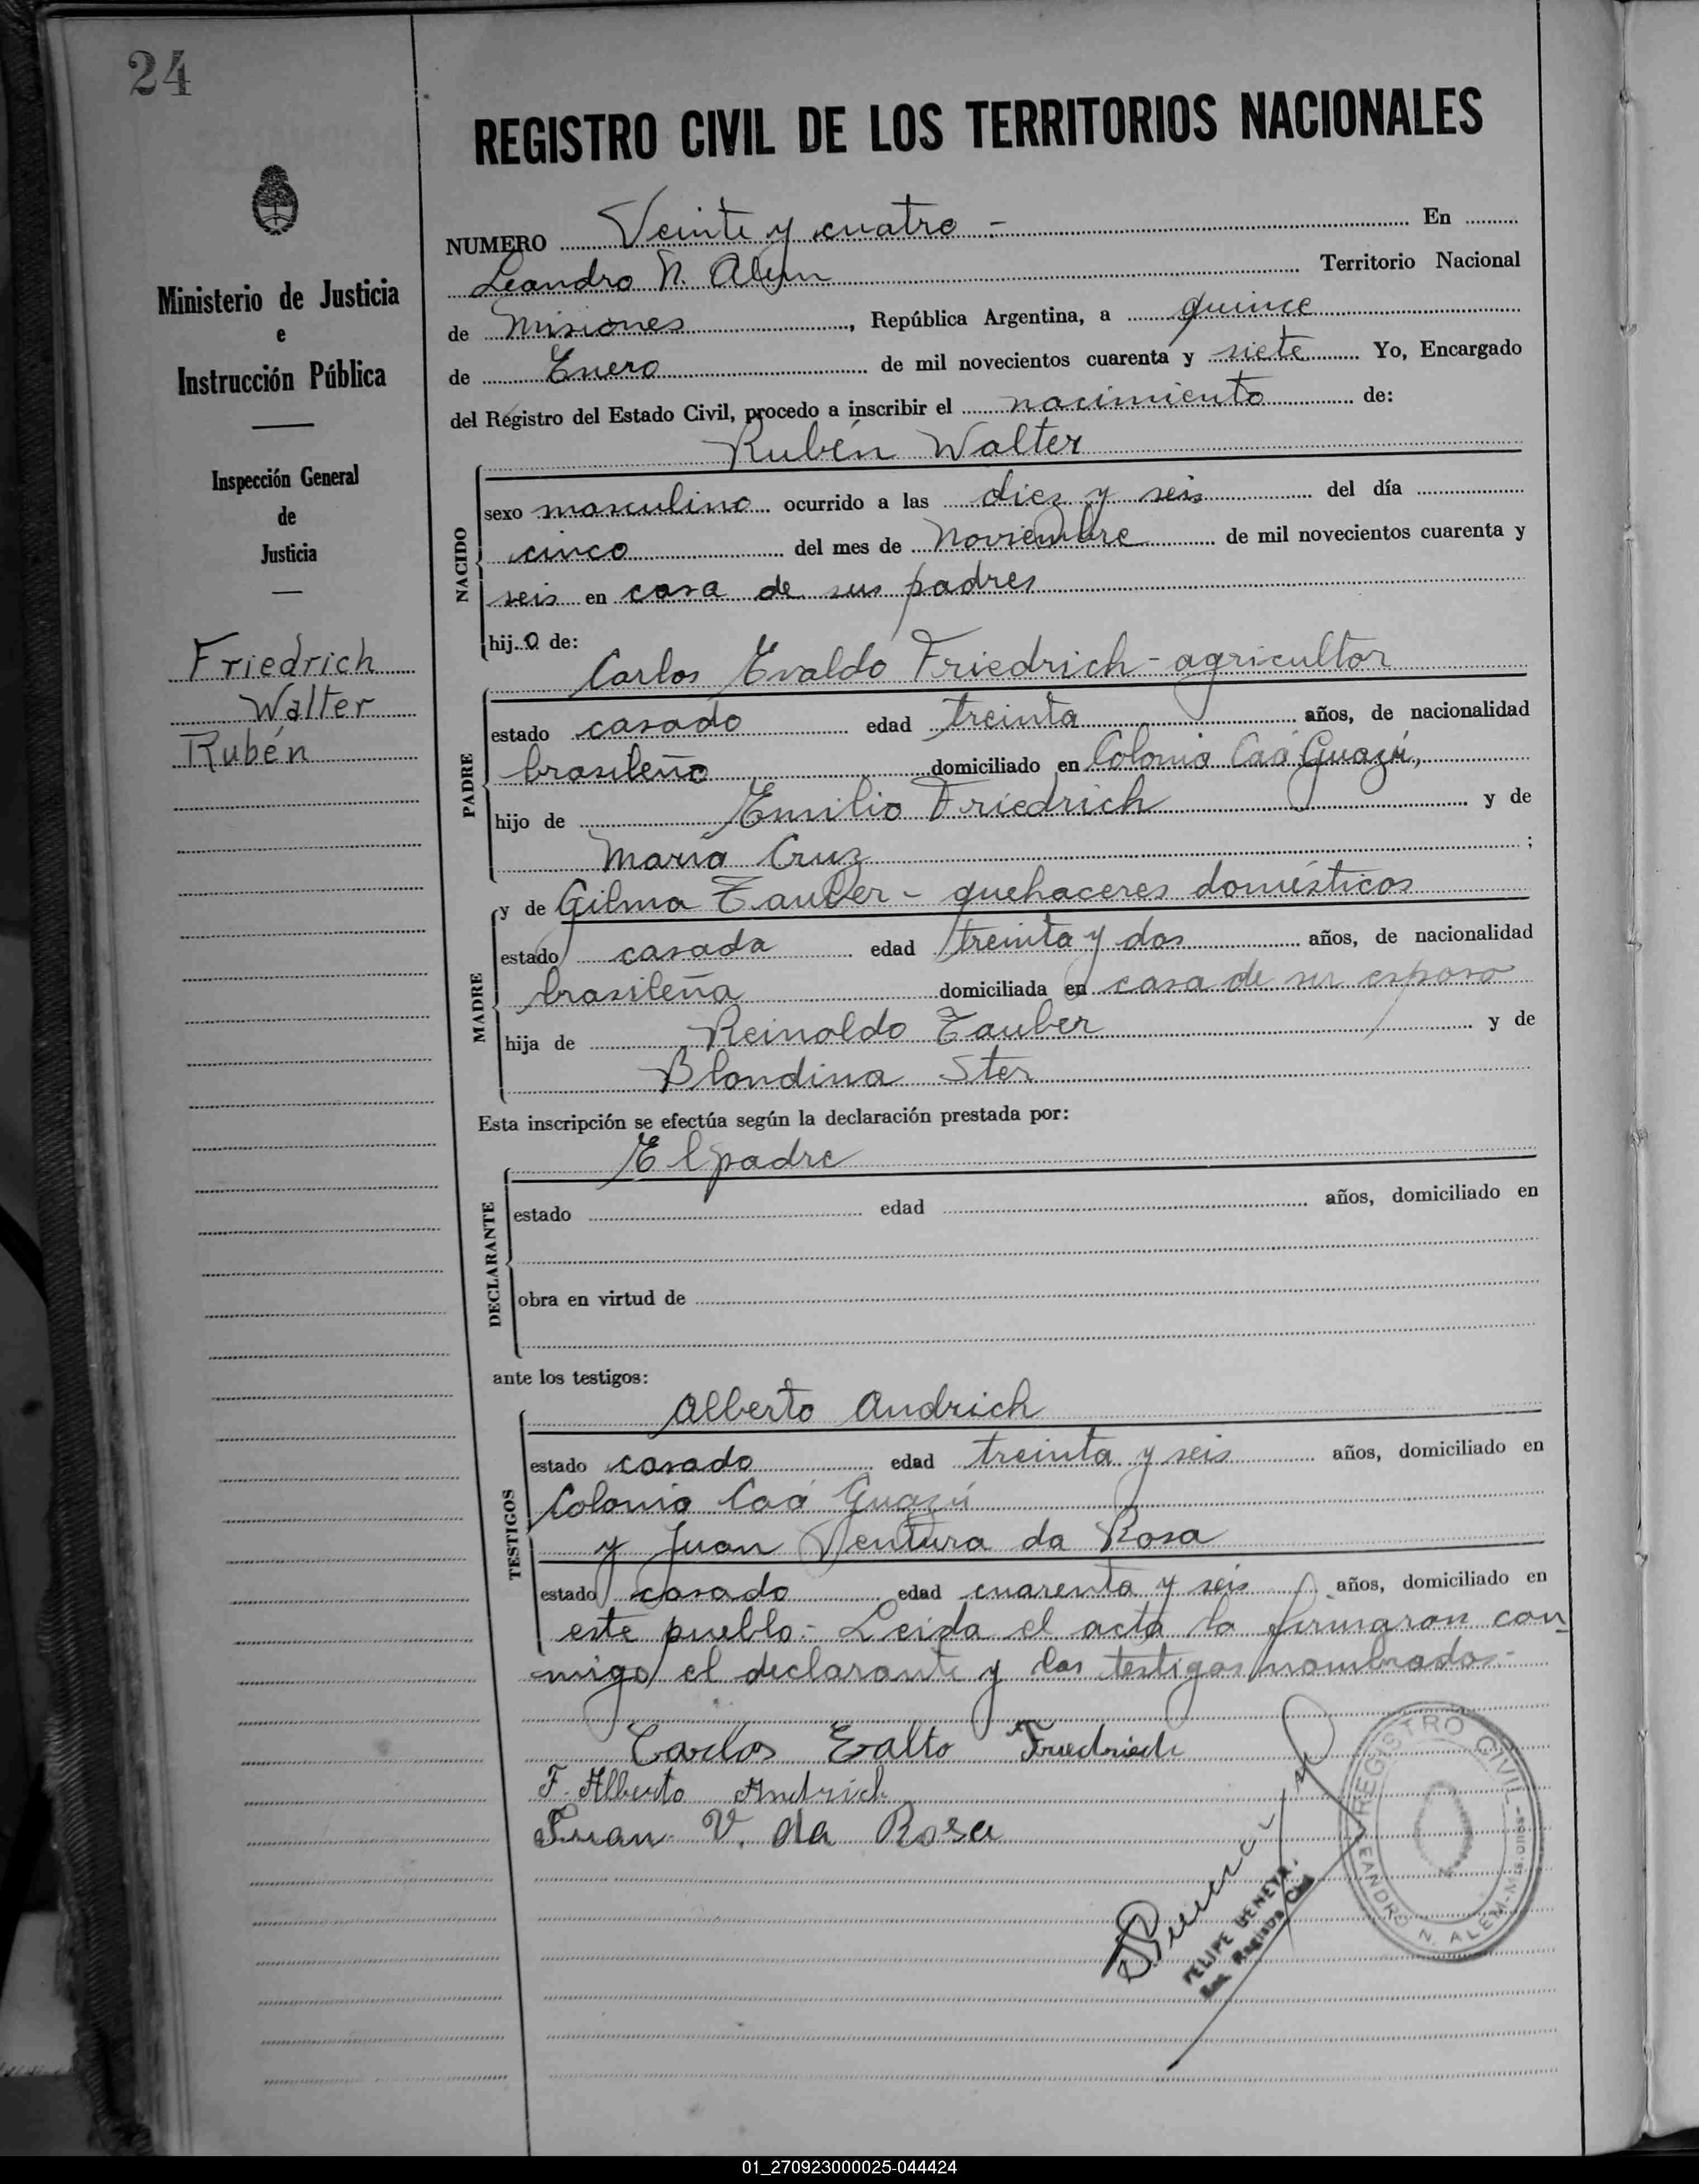 24
REGISTRO CIVIL DE LOS TERRITORIOS NACIONALES
Ministerio de Justicia
e
Instrucción Pública
Inspección General
de
Justicia
Friedrich
Walter
Rubén
NUMERO Veinte y cuatro - En
Leandro N. Alem Territorio Nacional
de Misiones, República Argentina, a quince
de Enero de mil novecientos cuarenta y siete Yo, Encargado
del Registro del Estado Civil, procedo a inscribir el nacimiento de:
Rubén Walter
NACIDO
sexo masculino ocurrido a las diez y seis del día
cinco del mes de Noviembre de mil novecientos cuarenta y
seis en casa de sus padres
hijo de:
Carlos Evaldo Friedrich - agricultor
PADRE
estado casado edad treinta años, de nacionalidad
brasileño domiciliado en Colonia Caá Guazú,
hijo de Emilio Friedrich y de
María Cruz ;
y de Gilma Tauber - quehaceres domésticos
MADRE
estado casada edad treinta y dos años, de nacionalidad
brasileña domiciliada en casa de su esposo
hija de Reinoldo Tauber y de
Blondina Ster
Esta inscripción se efectúa según la declaración prestada por:
El padre
DECLARANTE
estado edad años, domiciliado en
obra en virtud de
ante los testigos:
Alberto Andrich
TESTIGOS
estado casado edad treinta y seis años, domiciliado en
Colonia Caá Guazú
y Juan Ventura da Rosa
estado casado edad cuarenta y seis años, domiciliado en
este pueblo.- Leída el acta la firmaron con-
migo el declarante y los testigos nombrados.-
Carlos Evalto Friedrich
F. Alberto Andrich
Juan V. da Rosa
REGISTRO CIVIL
LEANDRO N. ALEM-Misiones-
FELIPE
Registro Civil
01_270923000025-044424